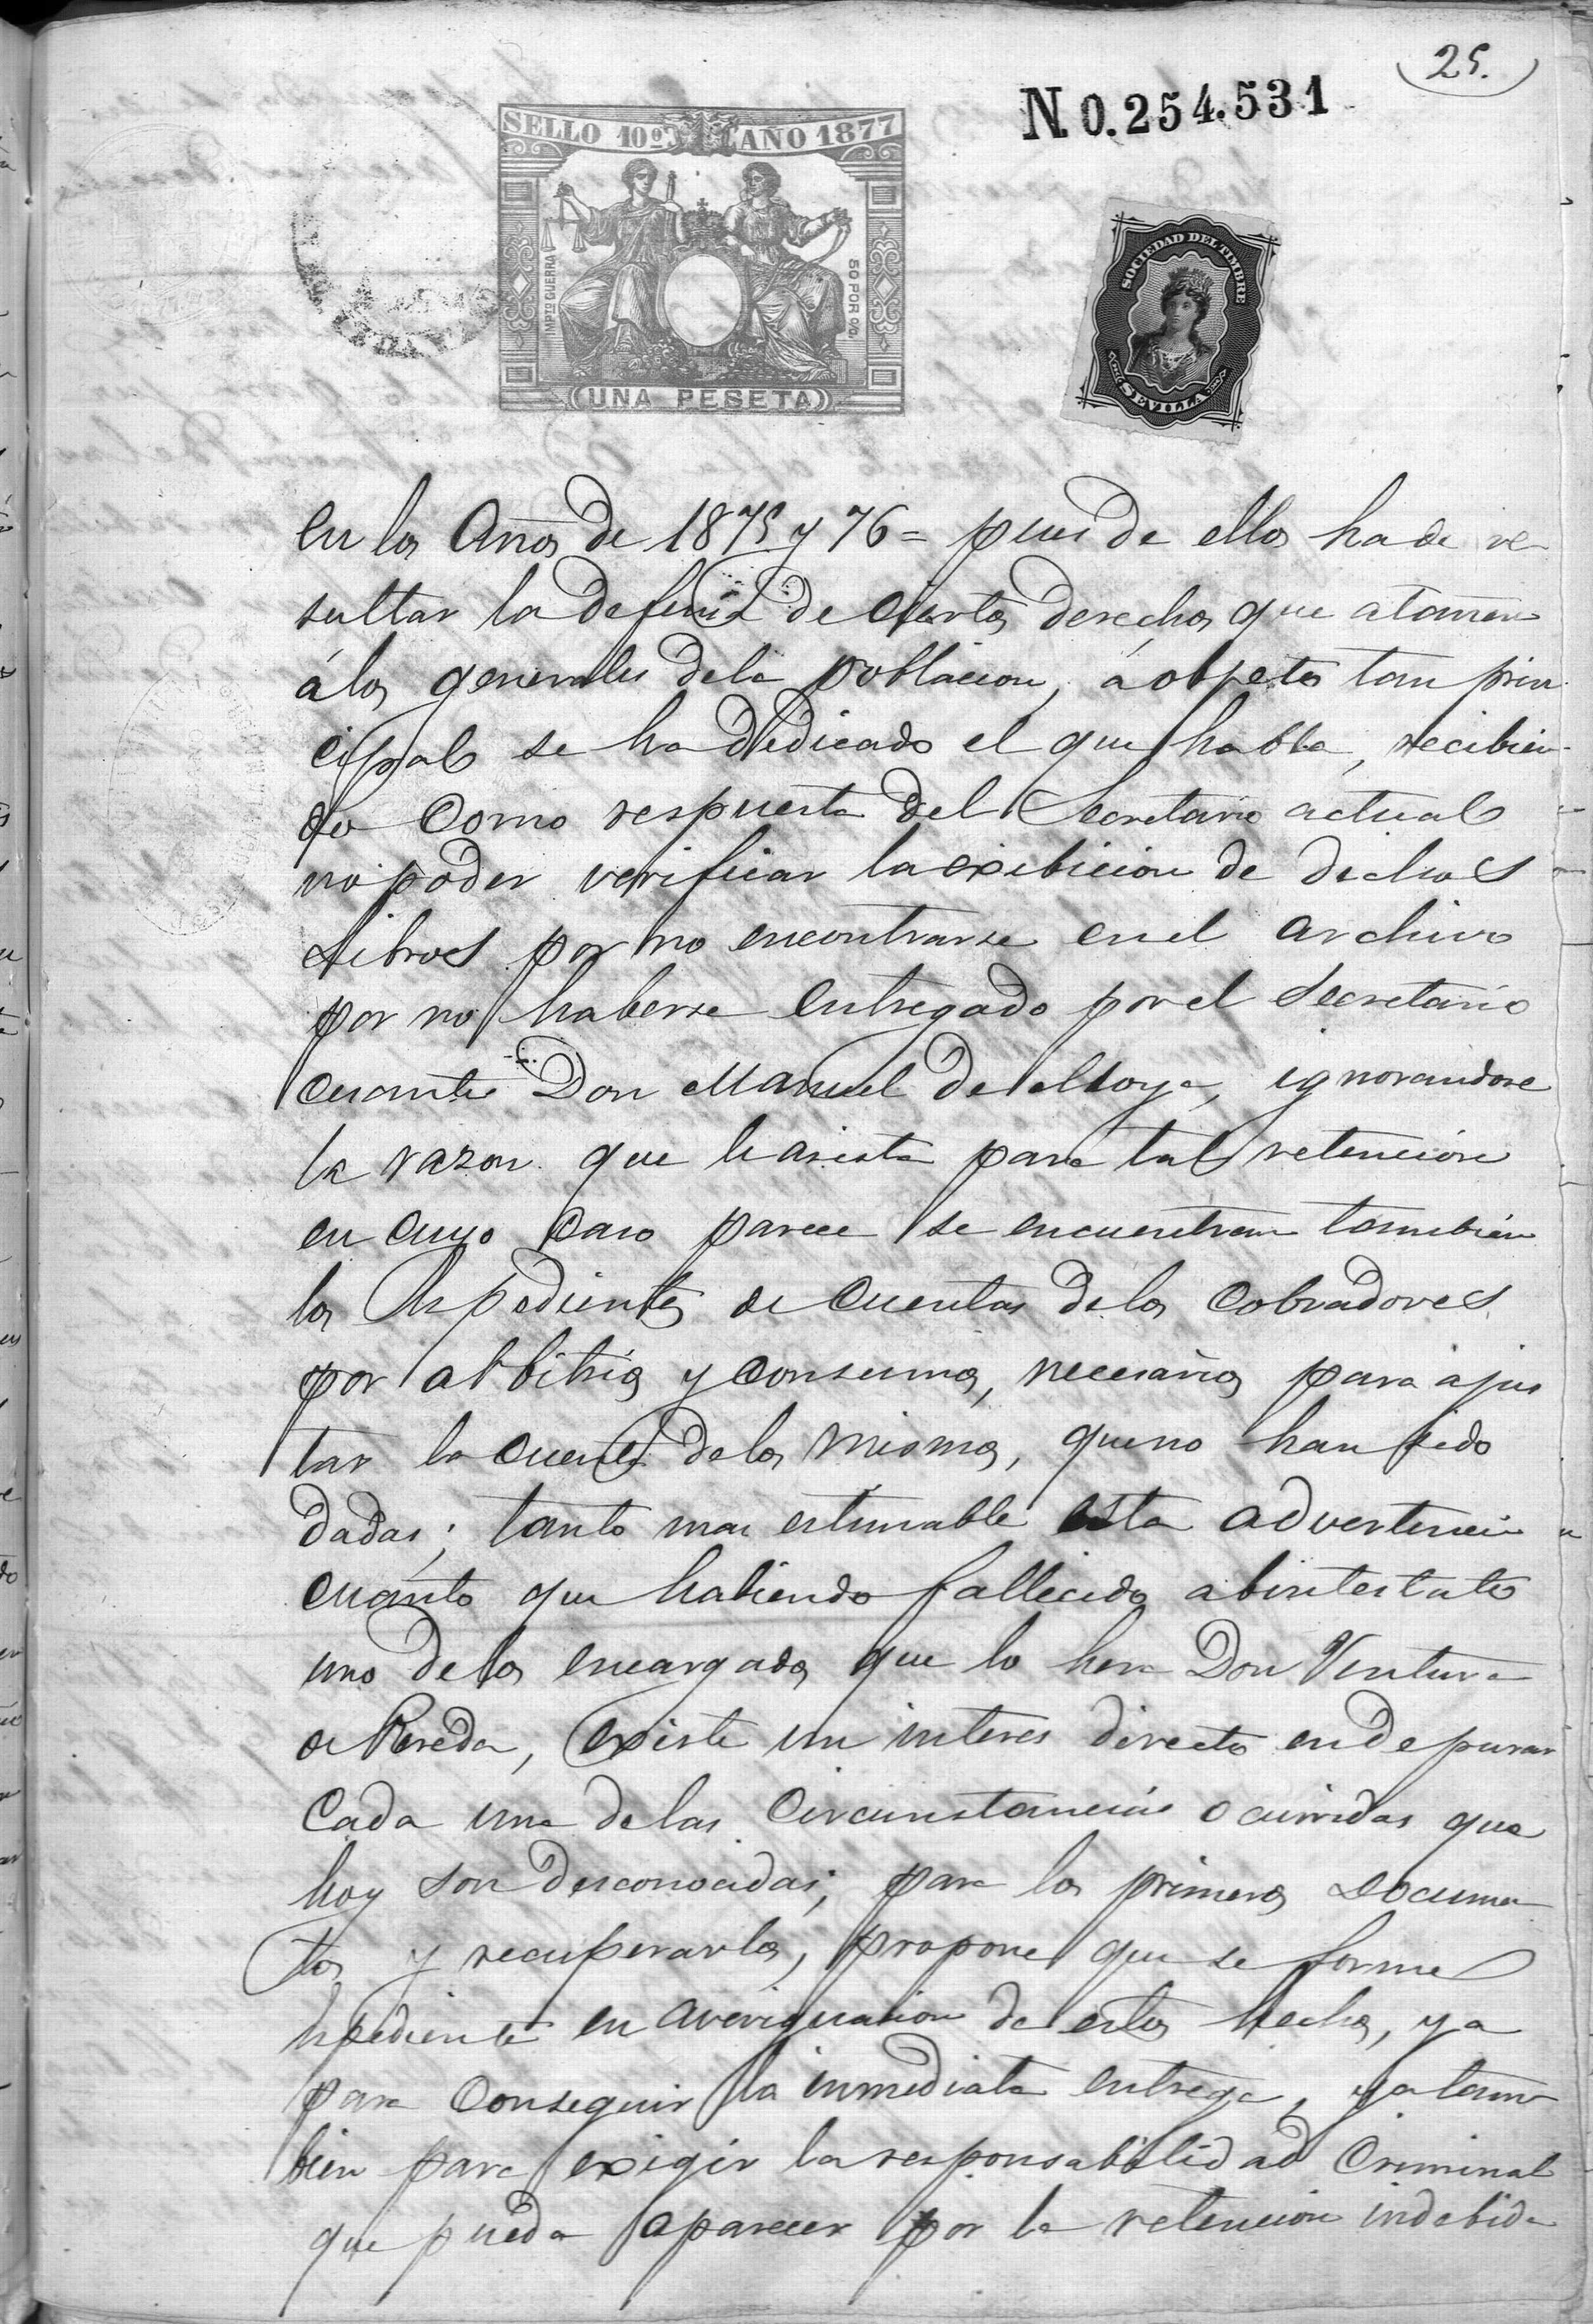 25.
N 0.254.531
SELLO 10º AÑO 1877
IMPTO GUERRA
50 POR 0/0.
(UNA PESETA)
SOCIEDAD DEL TIMBRE
SEVILLA
en los Años de 1875 y 76 = pues de ellos ha de re-
sultar la defensa de ciertos derechos que atañen
á los generales de la poblacion, á objeto tan prin-
cipal se ha dedicado el que habla, recibien-
do como respuesta del Secretario actual
no poder verificar la exibicion de dichos
Libros por no encontrarse en el archivo
por no haberse entregado por el Secretario
cesante Don Manuel de Moya, ignorandose
la razon que le asista para tal retencion
en cuyo caso parece se encuentran tambien
los Espedientes de cuentas de los cobradores
por arbitrios y consumos, necesarios para ajus
tar la cuenta de los mismos, que no han sido
dadas; tanto mas estimable esta advertencia
cuanto que habiendo fallecido abintestato
uno de los encargados que lo hera Don Ventura
de Pereda, existe un interes directo en depurar
cada una de las circunstancias ocurridas que
hoy son desconocidas; para los primeros documen
tos y recuperarlos, propone que se forme
Espediente en averiguacion de estos hechos, ya
para conseguir la inmediata entrega, ya tam
bien para exigir la responsabilidad criminal
que pueda aparecer por la retencion indebida